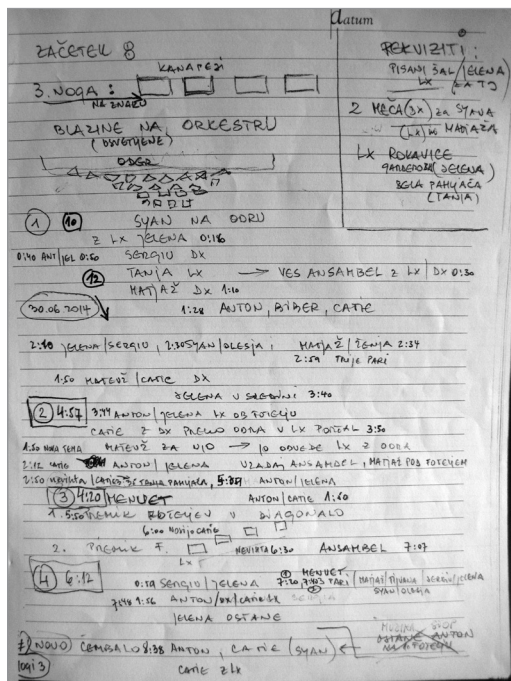 Datum
ZAČETEK 8
KANAPEJI
3. NOGA :
NA ZNAKU
BLAZINE NA ORKESTRU
(OSVETLJENE)
ODER
REKVIZITI :
PISANI ŠAL / JELENA
LX
2 MEČA (3x) za SYANA
(LX) in MATJAŽA
LX ROKAVICE
GARDEROBA (JELENA)
BELA PAHLJAČA
(TANJA)
1 10 SYAN NA ODRU
Z LX JELENA 0:18
0:40 ANT/JEL 0:50 SERGIU DX
12 TANJA LX → VES ANSAMBEL Z LX / DX 0:30
MATJAŽ DX 1:10
30.06.2014 1:28 ANTON, BIBER, CATIE
2:10 JELENA / SERGIU, 2:30 SYAN / OLESJA, MATJAŽ / ŽENJA 2:34
2:59 TRIJE PARI
1:50 MATEVŽ / CATIE DX
JELENA V SREDINI 3:40
2 4:57 3:44 ANTON / JELENA LX OB FOTELJU
CATIE Z DX PREKO ODRA V LX PORTAL 3:50
1:50 NOVA TEMA MATEVŽ ZA NJO → JO ODVEDE LX Z ODRA
2:12 CATIE ANTON / JELENA VZADAJ ANSAMBEL, MATJAŽ POD FOTELJEM
2:50 NEVIHTA / CATIE PAHLJAČA, ANTON / JELENA
3 4:20 / MENUET ANTON / CATIE 1:40
1. 5:50 PREMIK FOTELJEV V DIAGONALO
6:00 CATIE
2. PREMIK F. NEVIHTA 6:30 ANSAMBEL 7:07
LX
4 6:12
0:59 SERGIU / JELENA 1 MENUET
7:20, PARI / MATJAŽ / SERGIU / JELENA
2 SYAN / OLESJA
7:48 1:56 ANTON / DX / CATIE LX
JELENA OSTANE
NOVO) ČEMBALO 8:38 ANTON, CATIE (SYAN) ←
STOP
OSTANE ANTON
NA FOTELJU
LOGI 3 CATIE Z LX